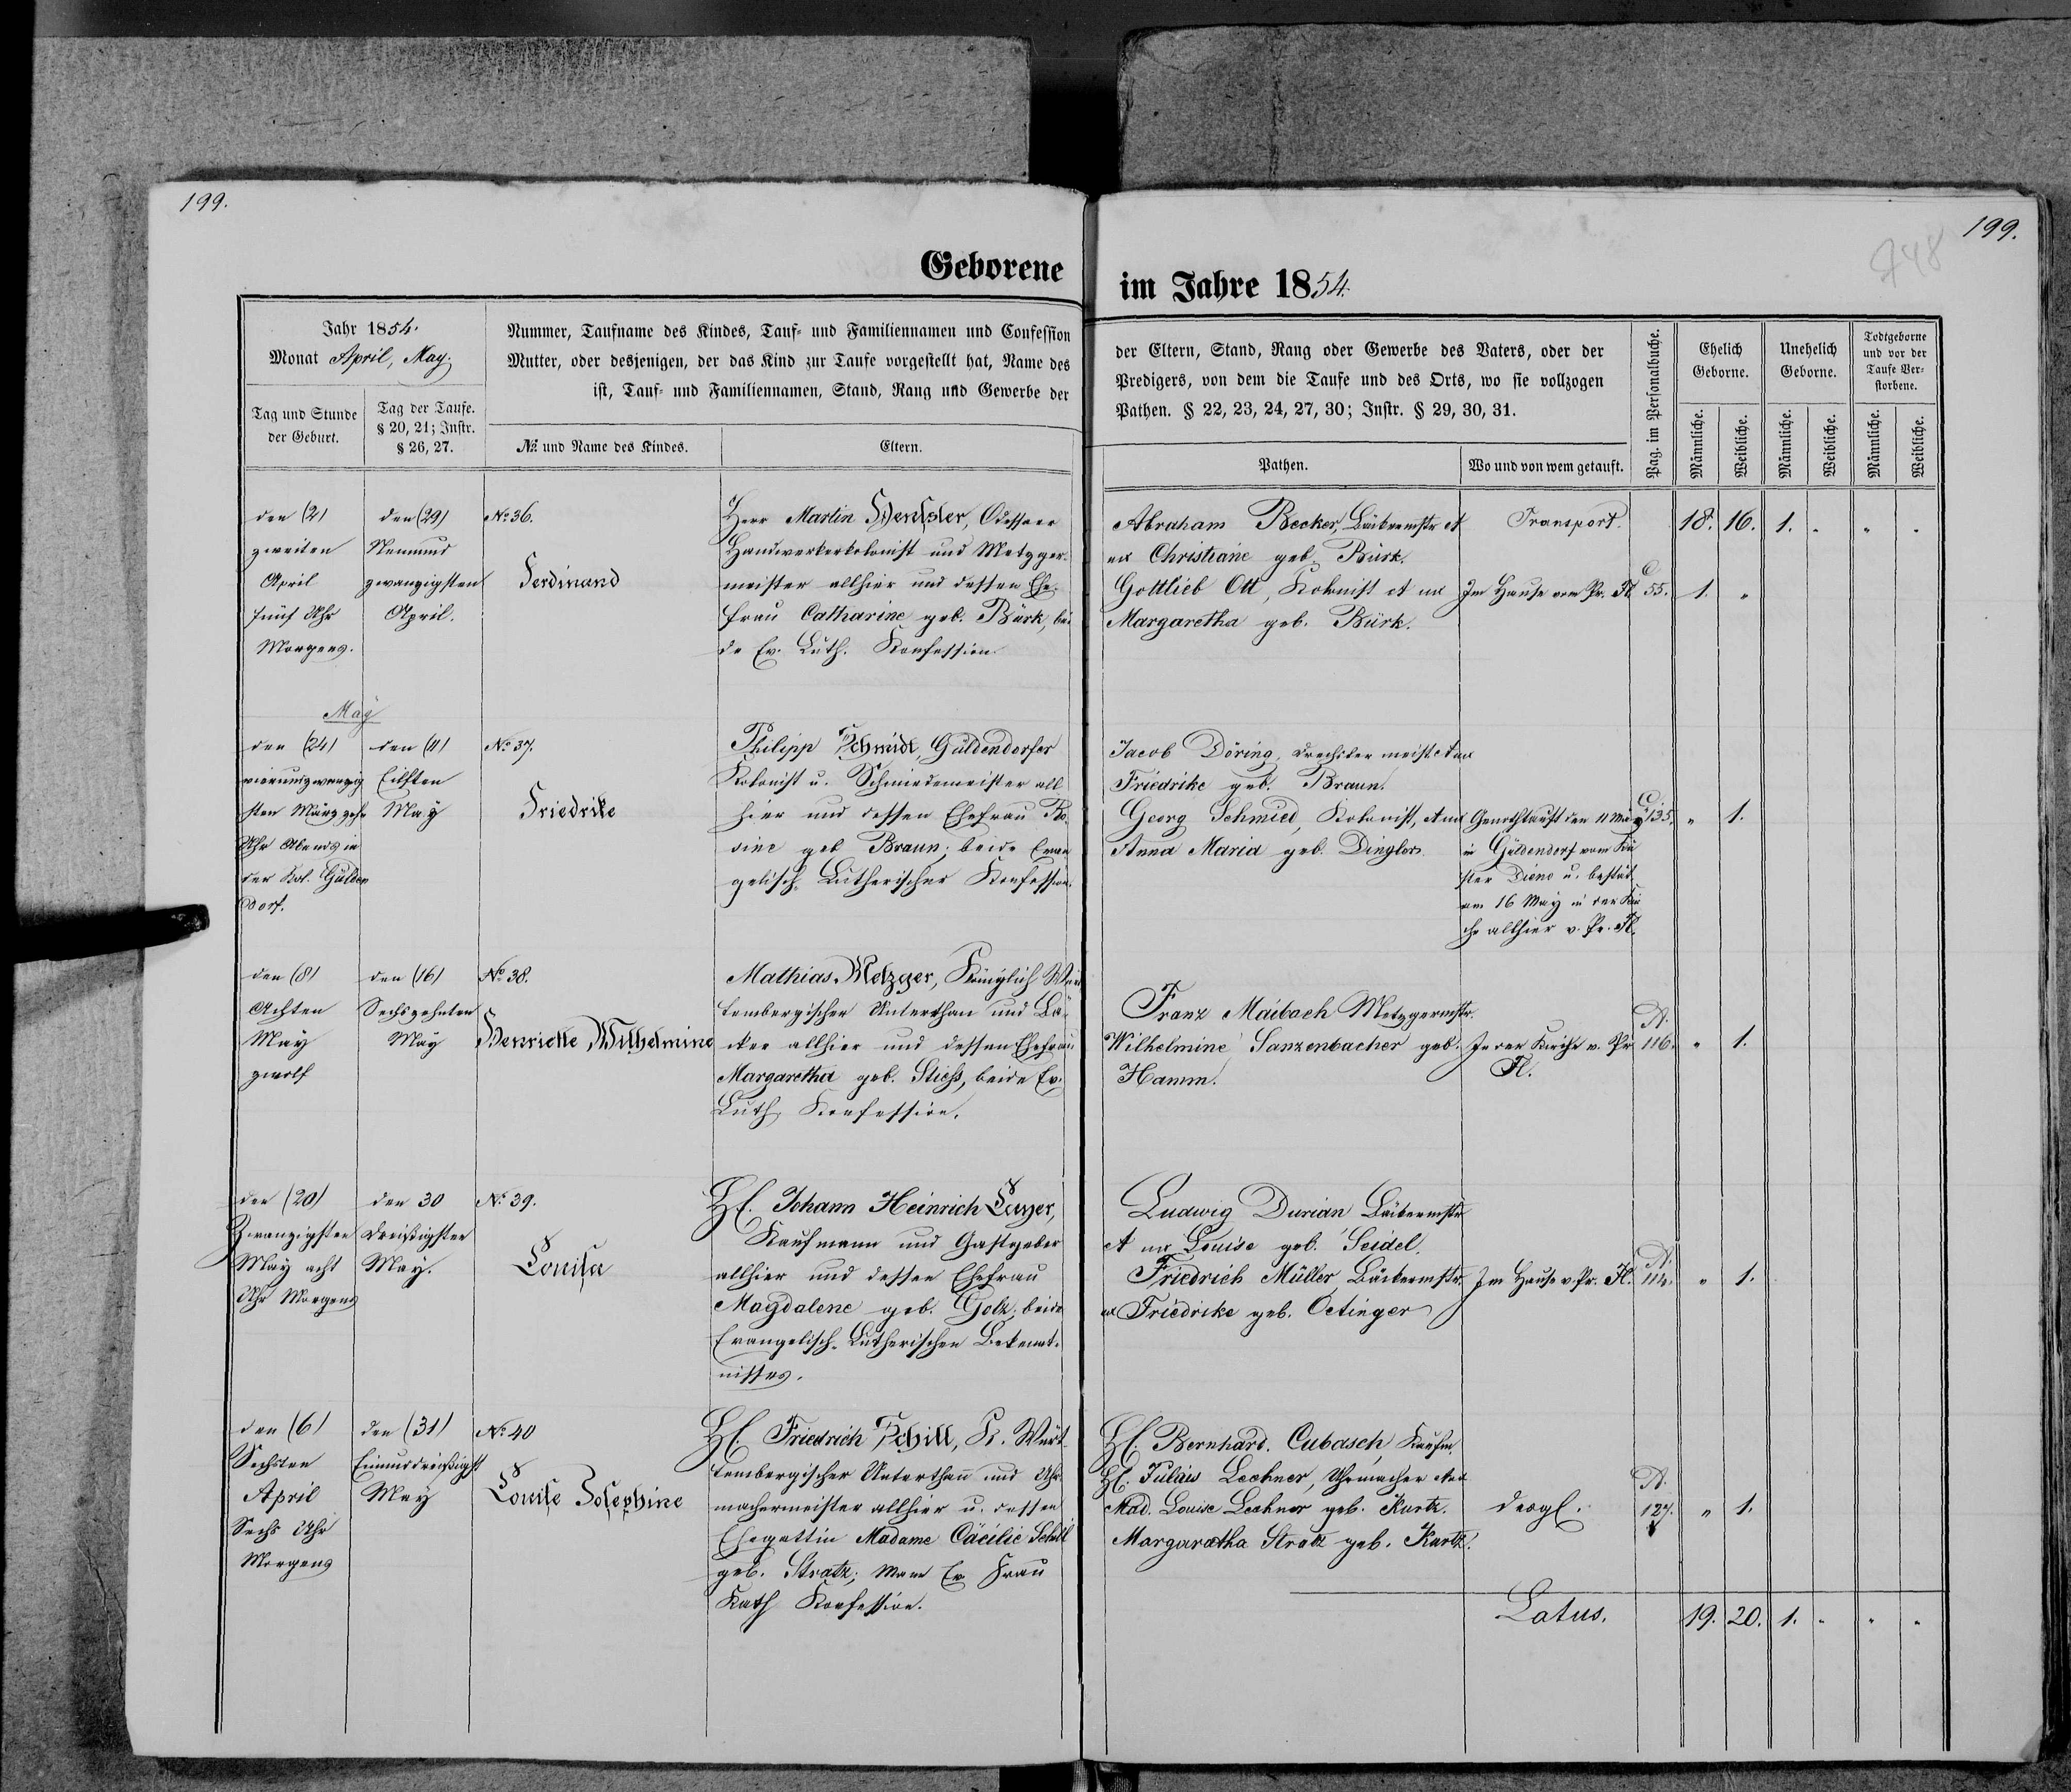 199.
Geborene
Jahr 1854.
Monat April, May.
Nummer, Taufname des Kindes, Tauf- und Familiennamen und Confession
Mutter, oder desjenigen, der das Kind zur Taufe vorgestellt hat, Name des
ist, Tauf- und Familiennamen, Stand, Rang und Gewerbe der
Tag und Stunde
der Geburt.
Tag der Taufe.
§ 20, 21; Instr.
§ 26, 27.
№ und Name des Kindes.
Eltern.
den (2)
zweiten
April
fünf Uhr
Morgens.
den (29)
Neunund
zwanzigsten
April.
No 36.
Ferdinand
Herr Martin Henßler, Odessaer
Handwerkerkolonist und Metzger-
meister allhier und dessen Ehe-
frau Catharine geb. Bürk, bei
de Ev. Luth. Konfession
May
den (24)
vierundzwanzig
sten März zehn
Uhr Abends in
der Kol. Gülden
dorf.
den (11)
Eilften
May
No 37.
Friedrike
Philipp Schmidt, Güldendorfer
Kolonist u. Schmiedemeister all
hier und dessen Ehefrau Ro-
sine geb Braun; beide Evan
gelisch-Lutherischer Konfession.
den (8)
Achten
May
zwolf
den (16)
Sechszehnten
May
No 38.
Henriette Wilhelmine
Mathias Metzger, Königlich Würt
tembergischer Unterthan und Bä-
cker allhier und dessen Ehefrau
Margaretha geb. Stieß, beide Ev.
Luth. Konfession.
den (20)
Zwanzigsten
May acht
Uhr Morgens
den 30
Dreißigsten
May.
No 39.
Louisa
H. Johann Heinrich
Kaufmann und Gastgeber
allhier und dessen Ehefrau
Magdalene geb. Golz; beide
Evangelisch-Lutherischen Bekennt-
nisses.
den (6)
Sechsten
April
Sechs Uhr
Morgens
den (31)
Einunddreißigst
May
No 40
Louise Josephine
H. Friedrich Schill, K. Würt-
tembergischer Unterthan und Uhr-
machermeister allhier u. dessen
Ehegattin Madame Cäcilie Schill
geb. Stratz; Mann Ev. Frau
Kath Konfession.
199.
748
im Jahre 1854.
der Eltern, Stand, Rang oder Gewerbe des Vaters, oder der
Predigers, von dem die Taufe und des Orts, wo sie vollzogen
Pathen. § 22, 23, 24, 27, 30; Instr. § 29, 30, 31.
Pathen.
Wo und von wem getauft.
Pag. im Personalbuche.
Ehelich
Geborne.
Unehelich
Geborne.
Todtgeborne
und vor der
Taufe Ver-
storbene.
Männliche.
Weibliche.
Männliche.
Weibliche.
Männliche.
Weibliche.
Abraham Becker, Bäckermstr et
ux Christiane geb. Bürk.
Transport. 18. 16. 1. " " "
Gottlieb Ott, Kolonist et ux
Margaretha geb. Bürk.
Im Hause vom Pr. Fl
C
55. 1. "
Jacob Döring, Drechslermeist et ux
Friedrike geb. Braun.
Georg Schmied, Kolonist, et ux
Anna Maria geb. Dingler
Genothtauft den 11 May
in Güldendorf vom Kü
ster Diene u. bestät
am 16 May in der Kir
che allhier v. Pr. Fl.
C
135. " 1.
Franz Maibach Metzgermstr.
Wilhelmine Sanzenbacher geb.
Hamm.
In der Kirche v. Pr
Fl.
A.
116. " 1.
Ludwig Durian Bäckermstr
et ux Louise geb. Seidel.
Friedrich Müller, Bäckermstr.
ux Friedrike geb. Oetinger
Im Hause v. Pr. Fl.
A.
114. " 1.
H. Bernhard Cubasch, Kaufm.
H. Julius Lechner, Uhrmacher
Mad. Louise Lechner geb. Kurtz.
Margaretha Stratz geb. Kurtz.
desgl.
A.
127. " 1.
Latus. 19. 20. 1. " " "